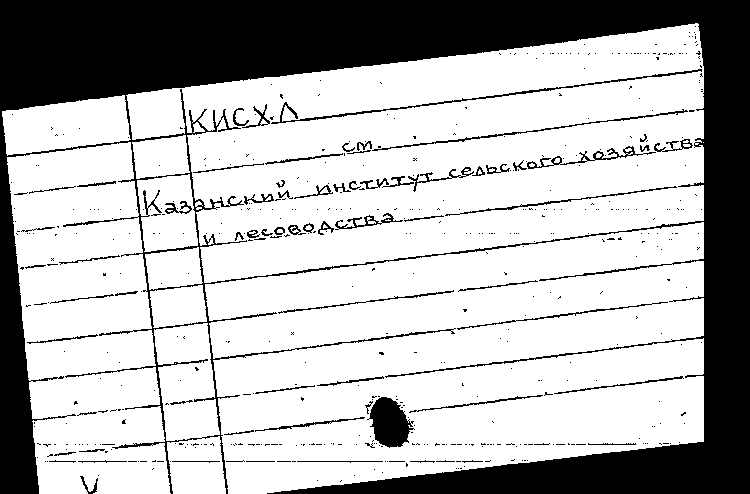 КИСХЛ
см.
Казанский институт сельского хозяйства
и лесоводства
V